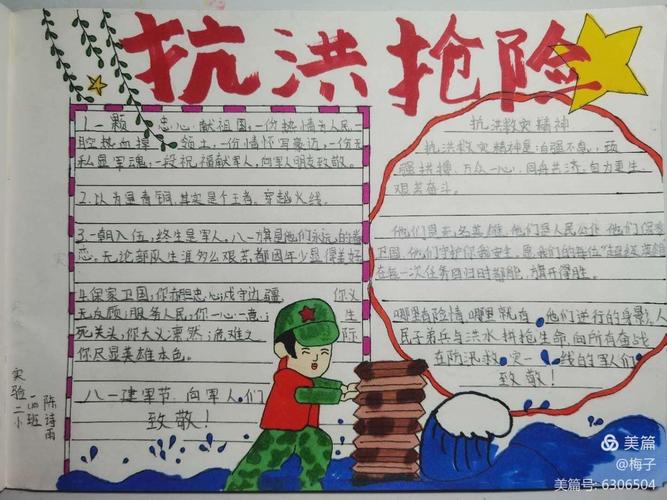 抗洪抢险
1.一颗 忠心献祖国,一份热情为人民一
腔热血捍 领土,一份情怀写豪迈,一份无
私显军魂,一段祝福献军人,向军人朋友致敬。
2.以为是青铜,其实是个王者。穿越火线。
3.一朝入伍,终生是军人,八一旗是他们永远的眷
恋。无论部队生涯多么艰苦,都因年少显得美好
4.保家卫国,你 忠心,戍守边疆 你义
无反顾;服务人民,你一心一意; 生
死关头,你大义凛然;危难之 际
你尽显英雄本色。
八一建军节,向军人们
致敬!
抗洪救灾精神
抗洪救灾精神是自强不息,顽
强拼搏,万众一心,同舟共济,自力更生
艰苦奋斗。
他们是无名英雄,他们是人民公仆,他们保家
卫国,他们守护你我安全。愿我们的每位"超级英雄
在每一次任务归时都能,旗开得胜。
哪里有险情,哪里就有他们逆行的身影,人
民子弟兵与洪水拼抢生命,向所有奋战
在防汛救灾一线的军人们
致敬!
实验二小
一四班
陈诗雨
美篇
@梅子
美篇号:6306504